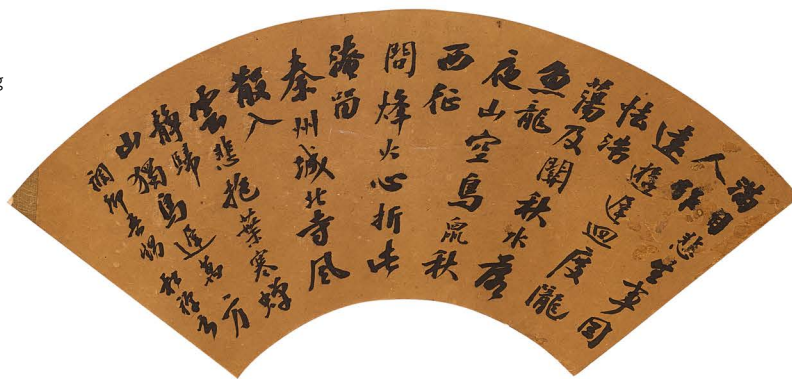 滿目悲生事因
人作
遠遊遲迴度隴
怯浩
蕩及關秋水落
魚龍
夜山空鳥鼠秋
西征
問烽火心折此
淹留
秦州城北寺風
散入
雲悲抱葉寒蟬
靜歸
山獨鳥遲萬方
卿吾 松禪